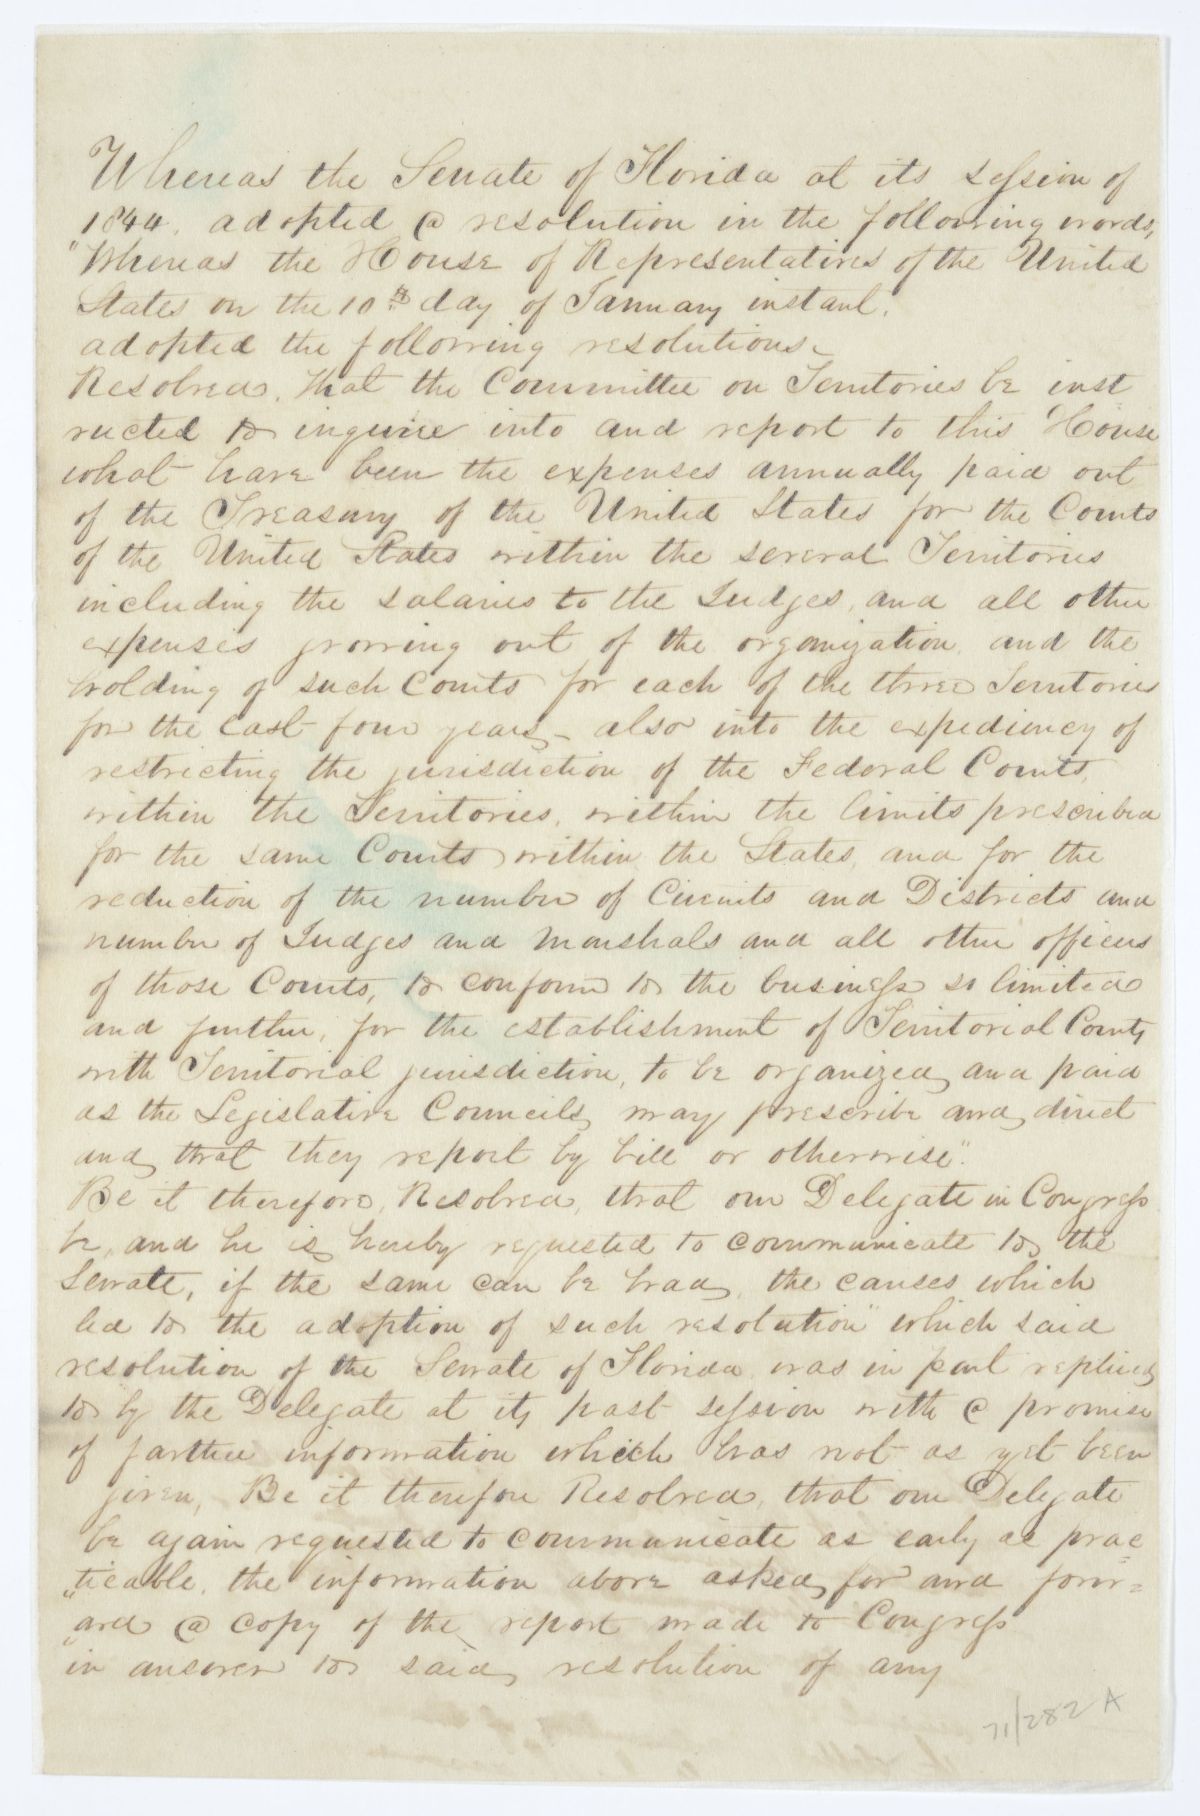 Whereas the Senate of Florida at its session of
1844. adopted a resolution in the following words,
"Whereas the House of Representatives of the United
States on the 10th day of January instant.
adopted the following resolutions
Resolved, that the Committee on Territories be inst
ructed to inquire into and report to this House
what have been the expenses annually paid out
of the Treasury of the United States for the Courts
of the United States within the several Territories
including the salaries to the Judges, and all other
expenses growing out of the organization, and the
holding of such Courts for each of the three Territories
for the last four years, - also into the expediency of
restricting the jurisdiction of the Federal Courts,
within the Territories, within the limits prescribed
for the same Courts within the States, and for the
reduction of the number of Circuits and Districts and
number of Judges and Marshals and all other officers
of those Courts, to conform to the business so limited
and further, for the establishment of Territorial Courts
with Territorial jurisdiction, to be organized and paid
as the Legislative Councils may prescribe and direct
and that they report by bill or otherwise".
Be it therefore, Resolved, that our Delegate in Congress
be, and he is hereby requested to communicate to the
Senate, if the same can be had, the causes which
led to the adoption of such resolution" which said
resolution of the Senate of Florida was in part replied
to by the Delegate at its past session with a promise
of farther information which has not as yet been
given, Be it therefore Resolved, that our Delegate
be again requested to communicate as early as prac=
"ticable, the information above asked for and forw=
"ard a copy of the report made to Congress
in answer to said resolution of any
71/282 A